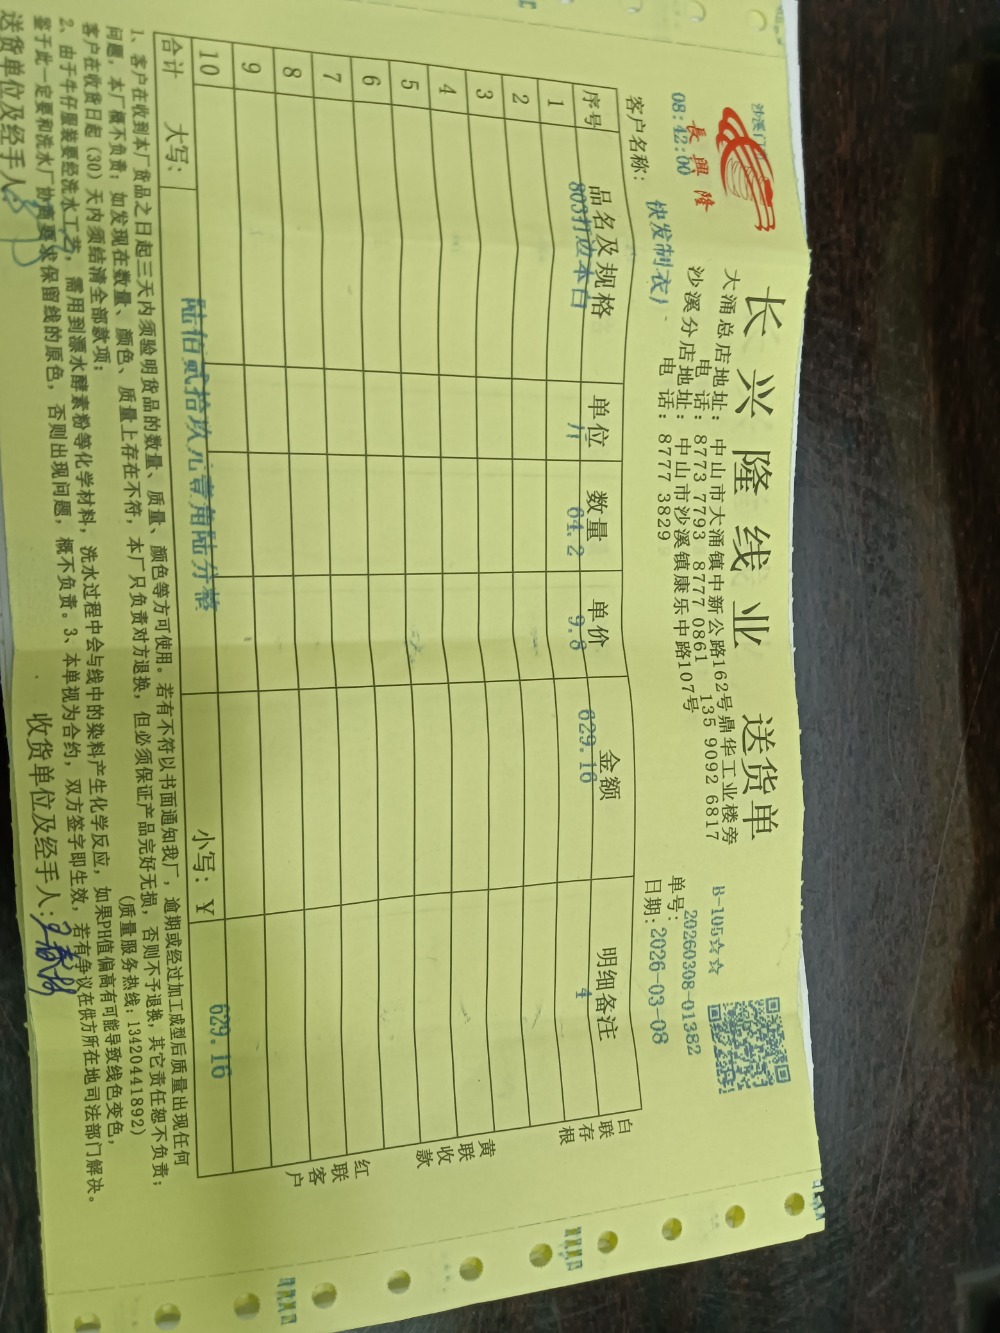 长兴隆线业 送货单
長興隆
沙溪门
08:42:00
大涌总店地址: 中山市大涌镇中新公路162号鼎华工业楼旁
电 话: 8773 7793 8777 0861 135 9092 6817
沙溪分店地址: 中山市沙溪镇康乐中路107号
电 话: 8777 3829
B-105☆☆
单号: 20260308-01382
客户名称: 快发制衣厂
日期: 2026-03-08
序号 品名及规格 单位 数量 单价 金额 明细备注
1 803打边本白 斤 64.2 9.8 629.16 4
2
3
4
5
6
7
8
9
10
合计 大写: 陆佰贰拾玖元壹角陆分整 小写: ¥ 629.16
白联存根
黄联收款
红联客户
1、客户在收到本厂货品之日起三天内须验明货品的数量、质量、颜色等方可使用。若有不符以书面通知我厂,逾期或经过加工成型后质量出现任何
问题,本厂概不负责;如发现在数量、颜色、质量上存在不符,本厂只负责对方退换,但必须保证产品完好无损,否则不予退换,其它责任恕不负责;
客户在收货日起(30)天内须结清全部款项; (质量服务热线:13420441892)
2、由于牛仔服装要经洗水工艺,需用到漂水酵素粉等化学材料,洗水过程中会与线中的染料产生化学反应,如果PH值偏高有可能导致线色变色,
鉴于此一定要和洗水厂协商要求保留线的原色,否则出现问题,概不负责。3、本单视为合约,双方签字即生效,若有争议在供方所在地司法部门解决。
送货单位及经手人: 收货单位及经手人: